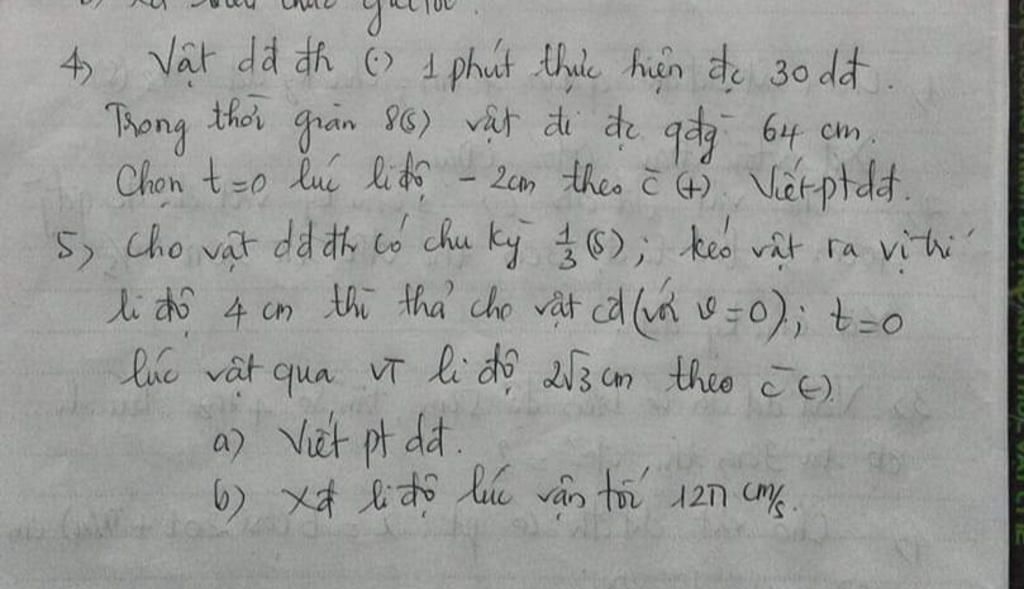 4) Vật dđ đh (.) 1 phút thực hiện đc 30 dđ.
Trong thời gian 8(s) vật đi đc qđg 64 cm.
Chọn t=0 lúc li độ - 2cm theo c (+). Viết pt dđ.
5) Cho vật dđ đh có chu kỳ 1/3 (s); kéo vật ra vị trí
li độ 4 cm thì thả cho vật cđ (với v=0); t=0
lúc vật qua VT li độ 2√3 cm theo c (-).
a) Viết pt dđ.
b) Xđ li độ lúc vận tốc 12π cm/s.